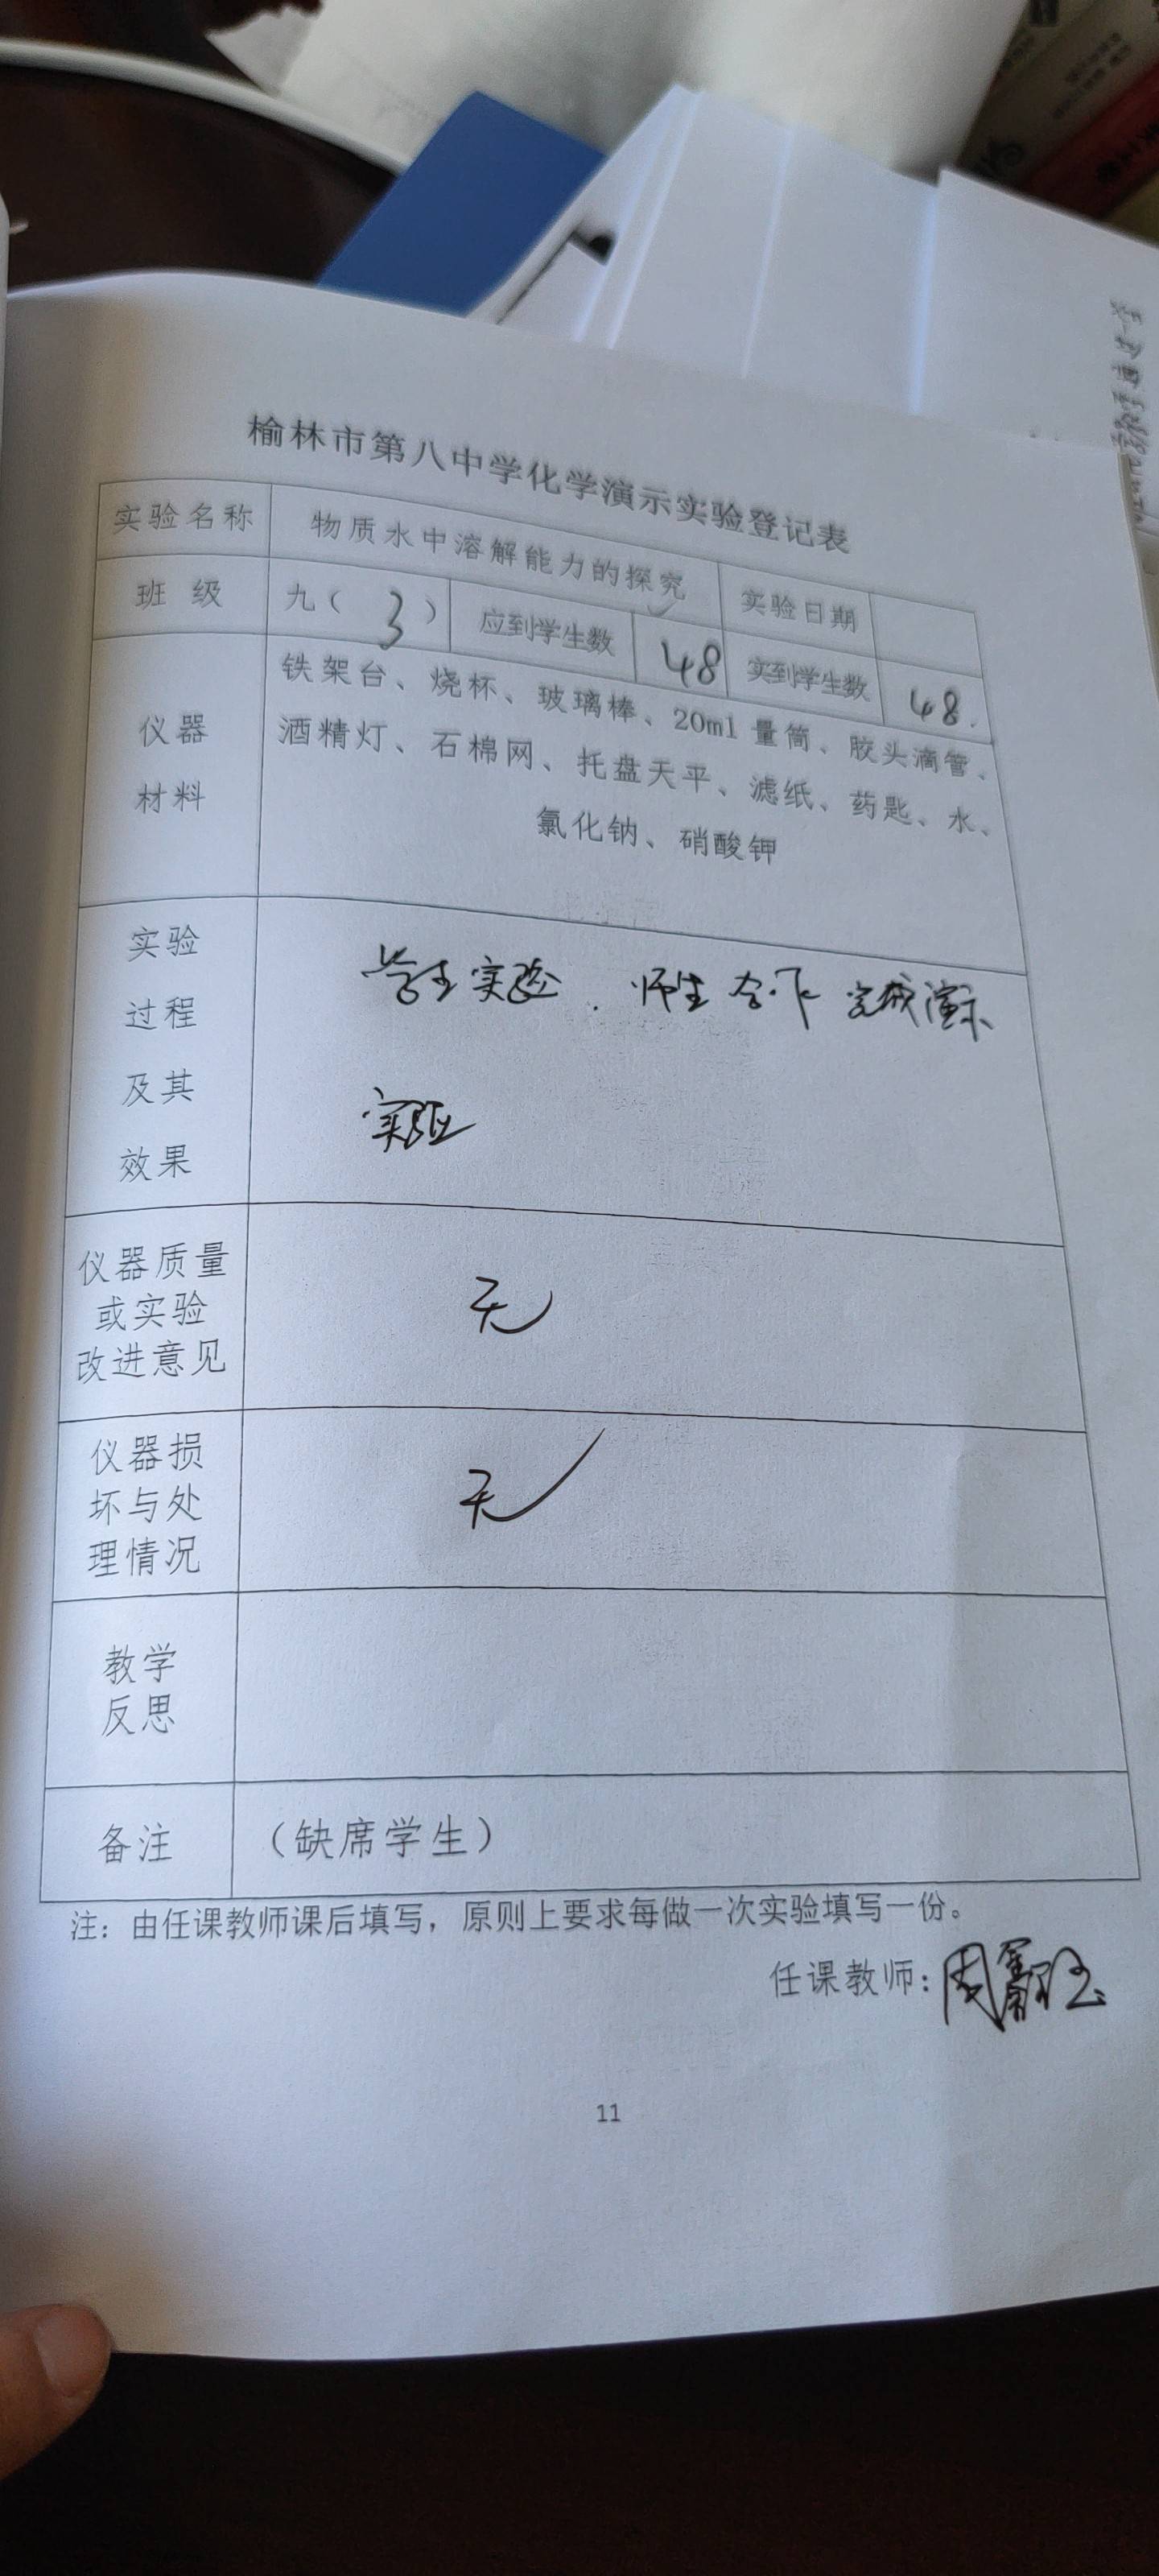 榆林市第八中学化学演示实验登记表
实验名称 物质水中溶解能力的探究 实验日期
班 级 九（ 3 ） 应到学生数 48 实到学生数 48.
仪器
材料
铁架台、烧杯、玻璃棒、20ml 量筒、胶头滴管、
酒精灯、石棉网、托盘天平、滤纸、药匙、水、
氯化钠、硝酸钾
实验
过程
及其
效果
学生实验. 师生合作完成演示
实验
仪器质量
或实验
改进意见
无
仪器损
坏与处
理情况
无
教学
反思
备注 （缺席学生）
注：由任课教师课后填写，原则上要求每做一次实验填写一份。
任课教师：周
11